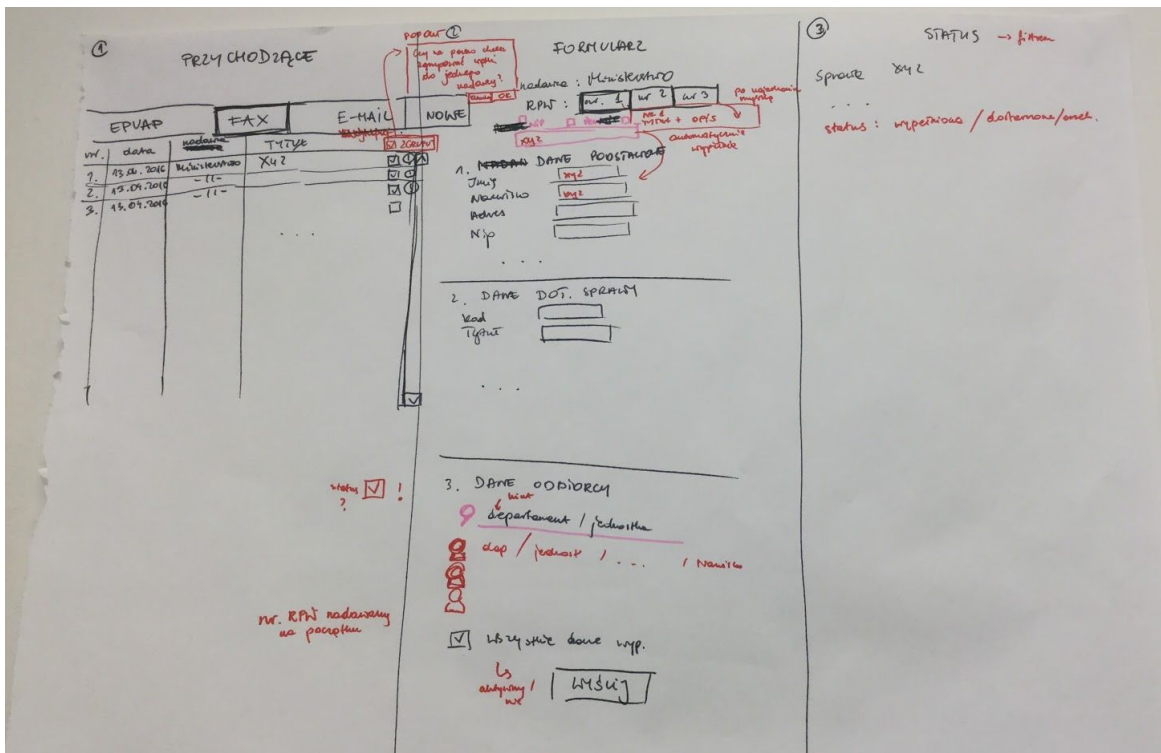 ①
PRZYCHODZĄCE
EPUAP
FAX
E-MAIL
NOWE
nr.
data
nadawca
TYTUŁ
1.
13.04.2016
Ministerstwo
XYZ
2.
13.04.2016
-11-
3.
13.04.2016
-11-
. . .
status
?
!
nr. RPW nadawany
na początku
POP OUT ②
Czy na pewno chcesz
zgrupować wpisy
do jednego
nadawcy?
OK
FORMULARZ
nadawca : Ministerstwo
RPW :
nr. 1
nr 2
nr 3
TYTUŁ + OPIS
xyz
automatycznie
wypełnia
1.
DANE PODSTAWOWE
Imię
xyz
Nazwisko
xyz
Adres
Nip
. . .
2. DANE DOT. SPRAWY
Kod
Tytuł
. . .
3. DANE ODBIORCY
hint
departament / jednostka
dep / jednost / . . . / Nazwisko
Wszystkie dane wyp.
aktywny /
nie
WYŚLIJ
③
STATUS → filtrem
Sprawa XYZ
. . .
status : wypełniono /